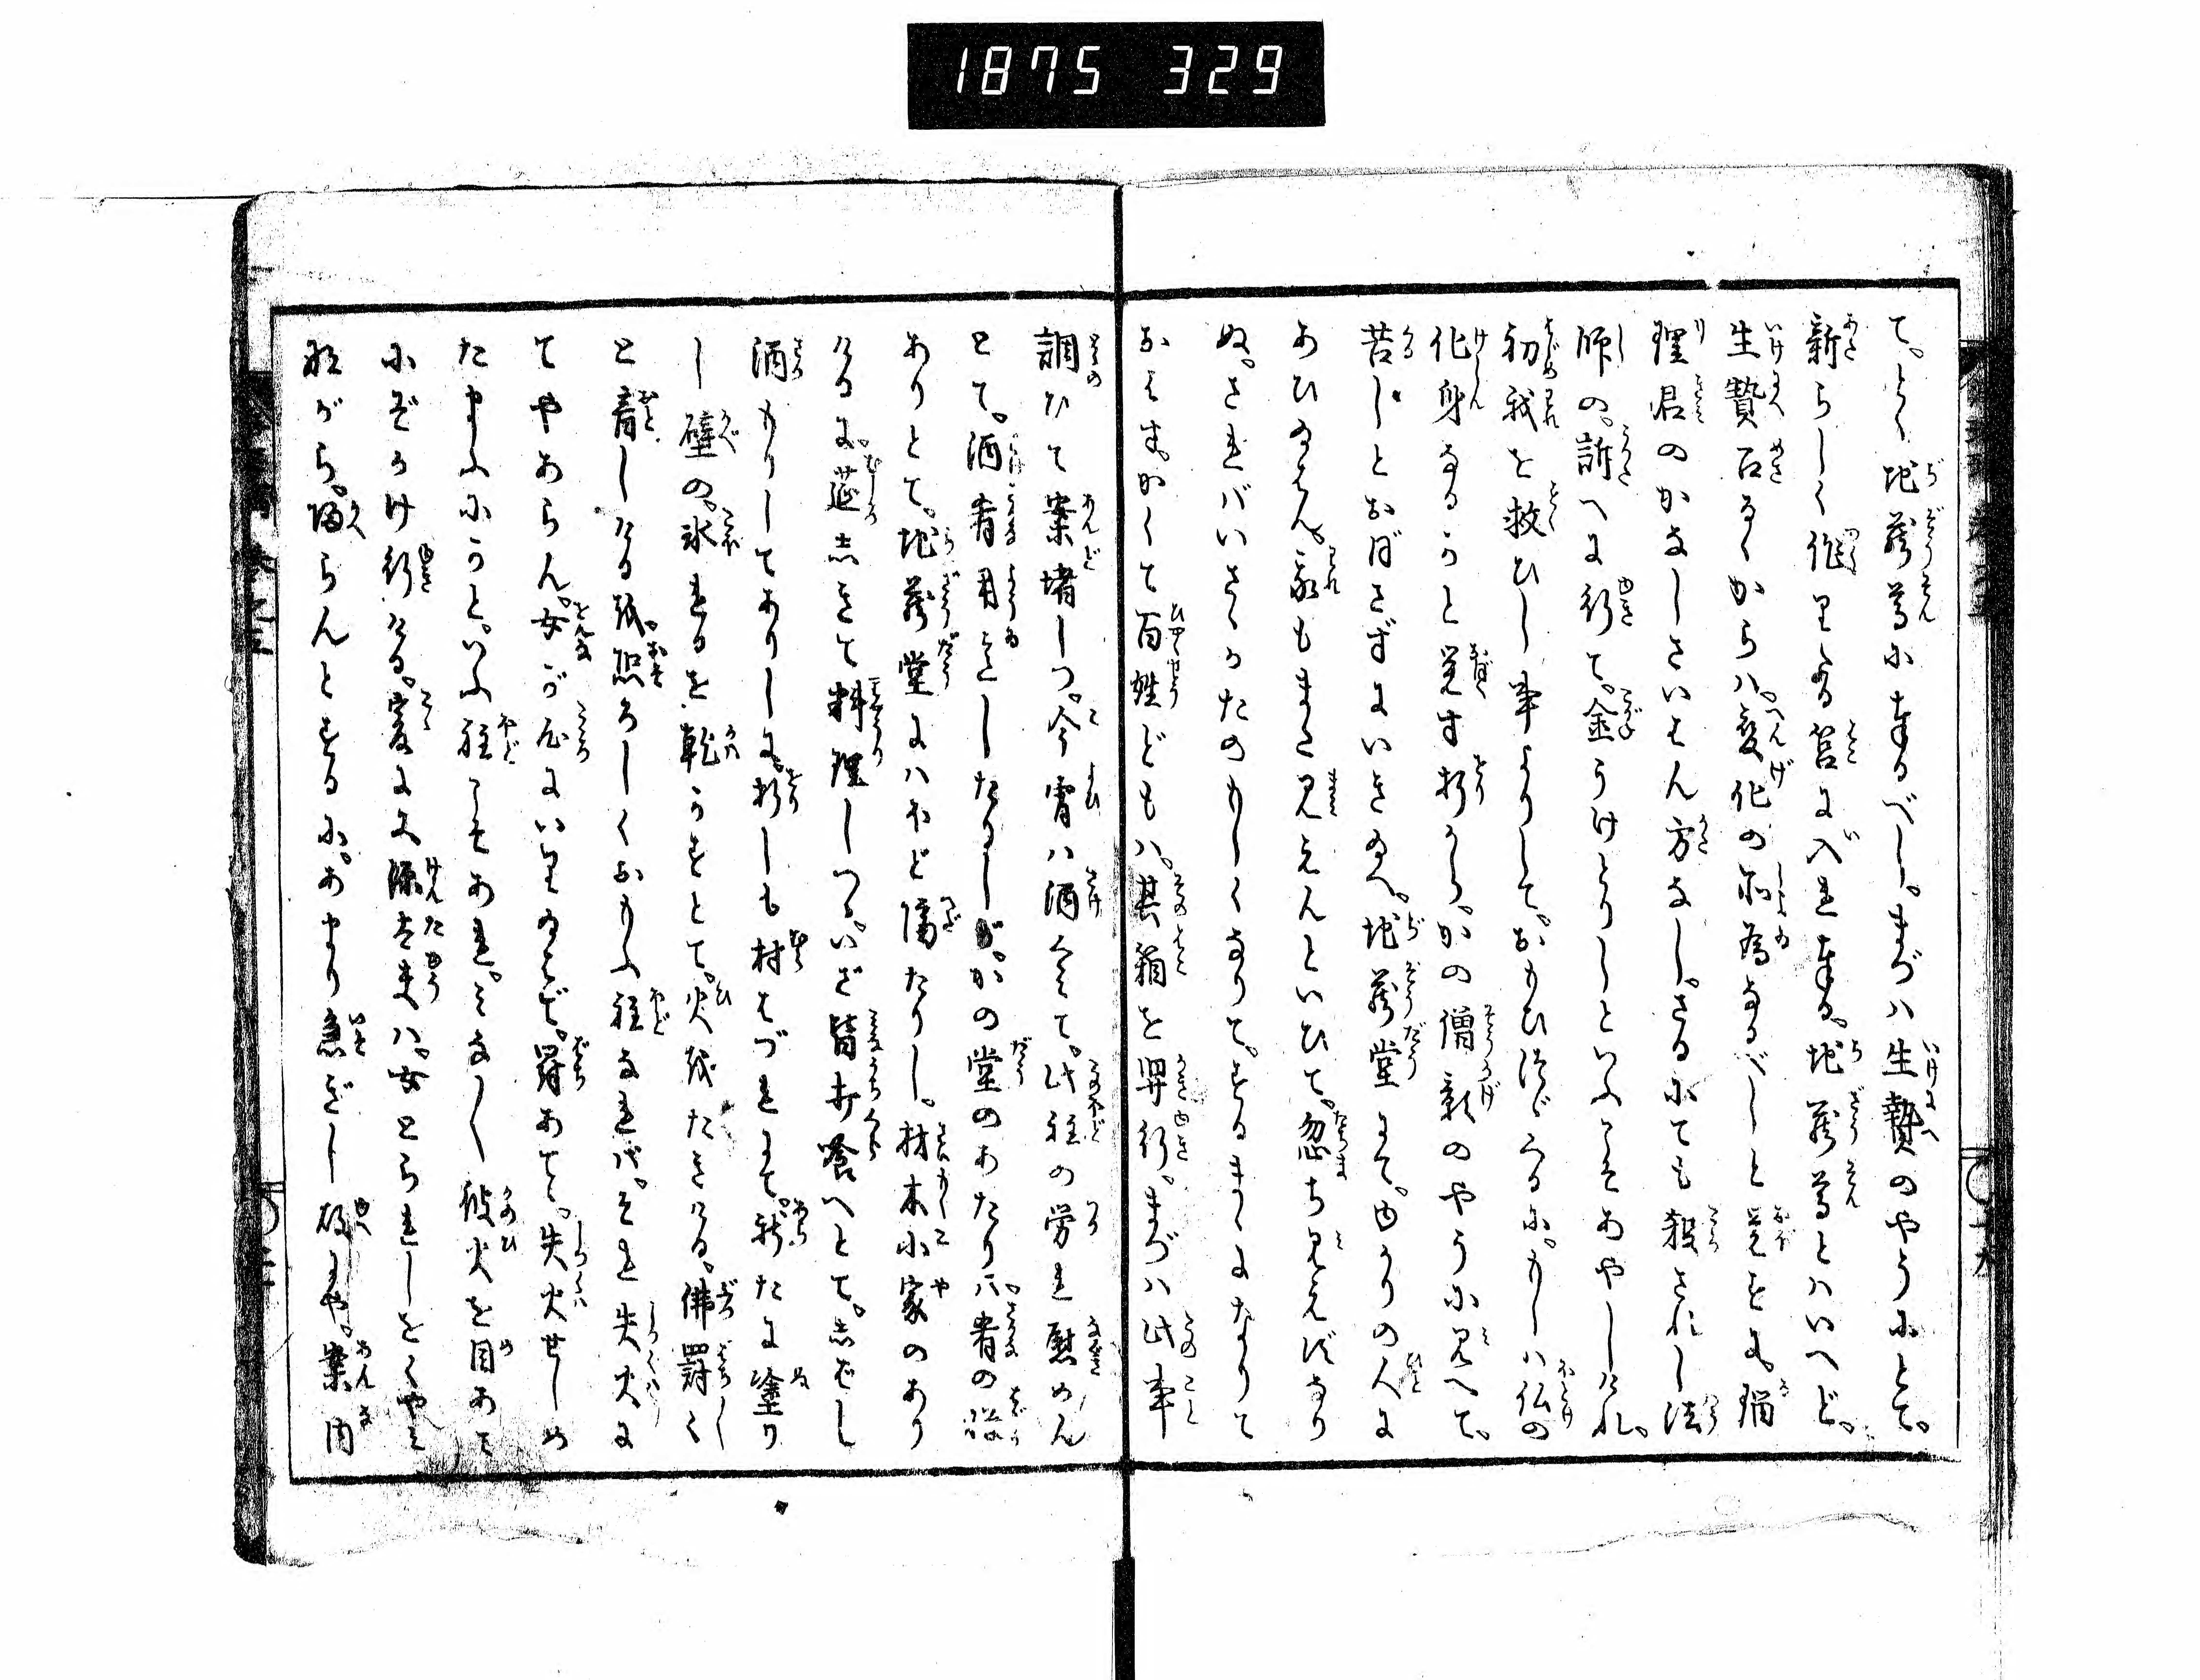 1875 329
て。とく地蔵尊に奉るべし。まづハ生贄のやうにとて。
新らしく作りたる筥に入れ奉る。地蔵尊とハいへど。
生贄召るゝからハ。変化の所為なるべしと覚をに。瑠
理君のかなしさいはん方なし。さるにても殺されし法
師の。訴へに行て。金うけとりしといふこそあやしけれ。
初我を救ひし事よりして。おもひ侍づくるに。もしハ仏の
化身なるかと覚す折から。かの僧影のやうに見へて。
苦しとおぼさずにいき給へ。地蔵堂にて。ゆかりの人に
あひ給はん。我もまた見えんといひて。忽ち見えずなり
ぬ。さればいさゝかたのもしくなりて。するまゝになりて
おはす。かくて百姓どもハ。其箱を舁行。まづハ此事
調ひて案堵しつ。今宵ハ酒くみて。此程の労れ慰めん
とて。酒肴用意したるしが。かの堂のあたり八。肴の設
ありとて。地蔵堂にハやど儲たりし。材木小家のあり
けるに。莚しきて料理しつる。いざ皆打喰へとて。しばし
酒もりしてありしに。折しも村はづれにて。新たに塗り
し壁の。氷れるを乾かすとて。火城たきける。佛罰く
と音しける城。恐ろしくおもふ程なれば。それ失火に
てやあらん。女が処にいり給はで。罸あてゝ。失火せしめ
たまふにかと。いふ程こそあれ。みなく彼火を目あて
にぞかけ行ける。爰に又源太夫ハ。女とられしをくやみ
ながら。帰らんとするに。あまり急ぎし故にや。案内